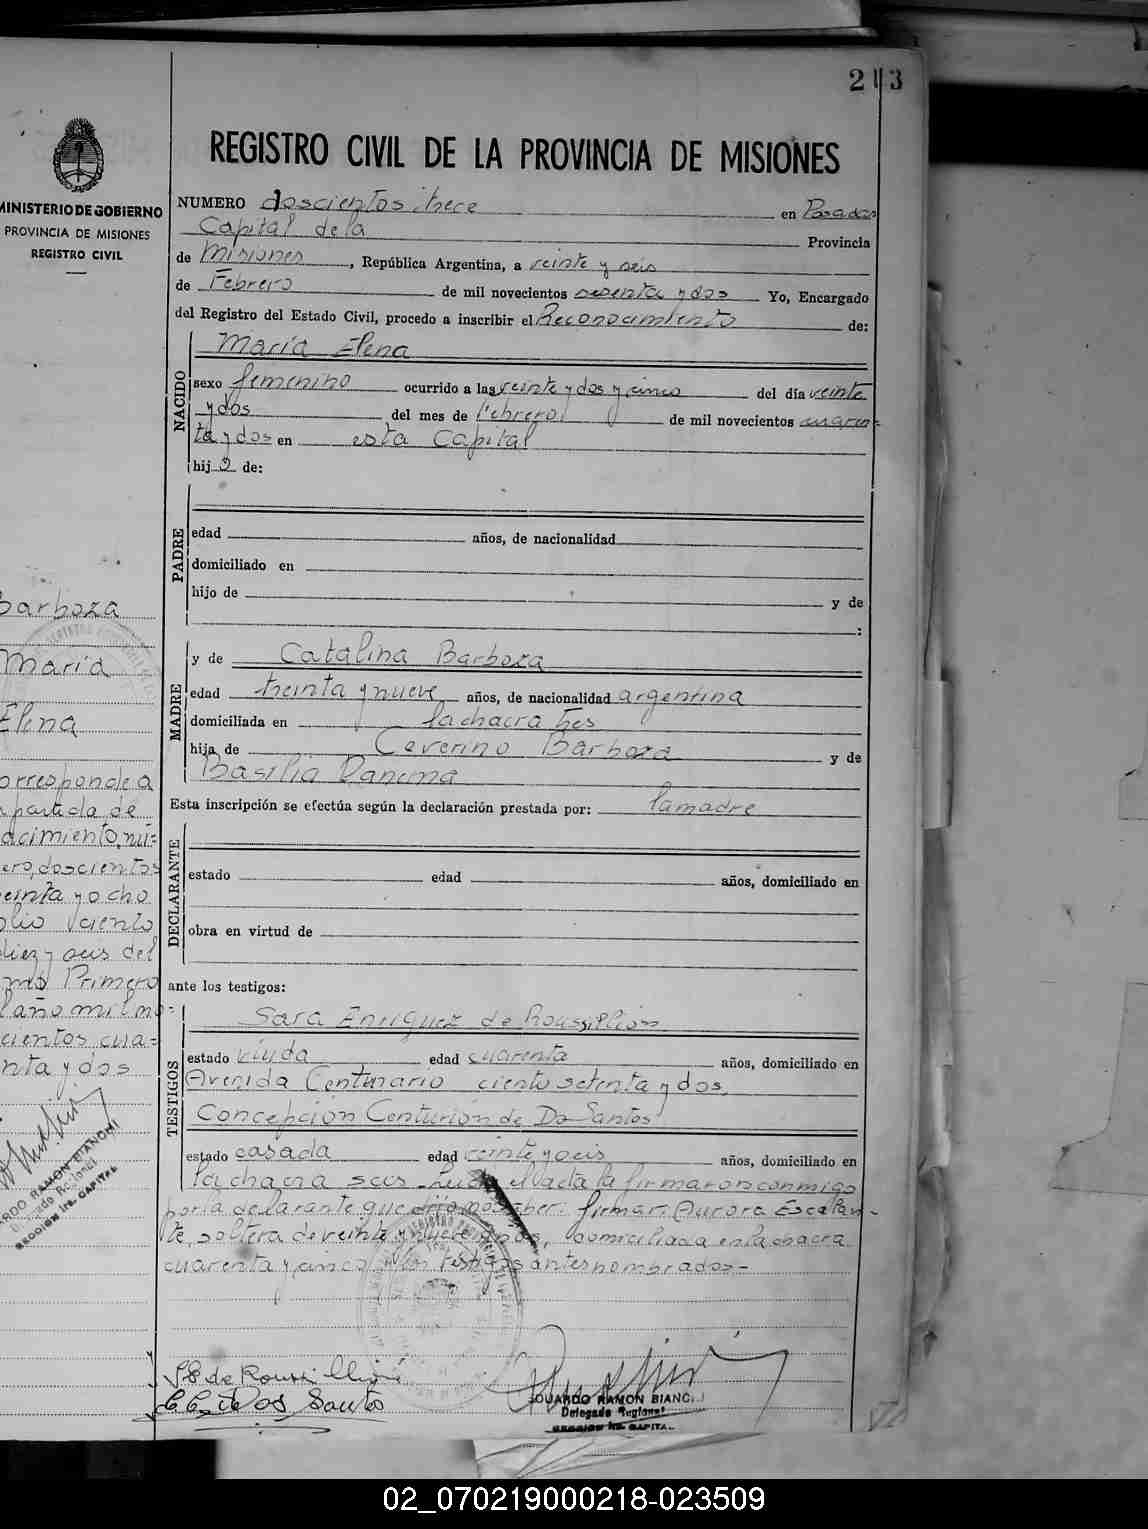 213
REGISTRO CIVIL DE LA PROVINCIA DE MISIONES
MINISTERIO DE GOBIERNO
PROVINCIA DE MISIONES
REGISTRO CIVIL
NUMERO doscientos trece en Posadas
Capital de la Provincia
de Misiones, República Argentina, a veinte y seis
de Febrero de mil novecientos sesenta y dos Yo, Encargado
del Registro del Estado Civil, procedo a inscribir el Reconocimiento de:
NACIDO
Maria Elena
sexo femenino ocurrido a las veinte y dos y cinco del día veinte
y dos del mes de Febrero de mil novecientos cuaren-
ta y dos en esta Capital
hij a de:
PADRE
edad años, de nacionalidad
domiciliado en
hijo de y de
:
MADRE
y de Catalina Barboza
edad treinta y nueve años, de nacionalidad argentina
domiciliada en la chacra tres
hija de Ceverino Barboza y de
Basilia
Esta inscripción se efectúa según la declaración prestada por: la madre
DECLARANTE
estado edad años, domiciliado en
obra en virtud de
ante los testigos:
TESTIGOS
Sara Enriquez de Roussillion
estado viuda edad cuarenta años, domiciliado en
Avenida Centenario ciento setenta y dos,
Concepción Centurión de Do Santos
estado casada edad veinte y seis años, domiciliado en
la chacra seis. el acta la firmaron conmigo
por la declarante que dijo no saber firmar: Aurora Escalan-
te, soltera de veinte y nueve años, domiciliada en la chacra
cuarenta y cinco y los testigos antes nombrados-
Barboza
Maria
Elena
orresponde a
partida de
acimiento, nú-
ero, doscientos
veinta y ocho
olio ciento
diez y seis del
Primero
año mil no-
cientos cua-
nta y dos
ARDO RAMON BIANCHI
Delegado Regional
SECCION 1ra. CAPITAL
S E de Roussillion
C C de Dos Santos
EDUARDO RAMON BIANCHI
Delegado Regional
SECCION 1ra. CAPITAL
02_070219000218-023509